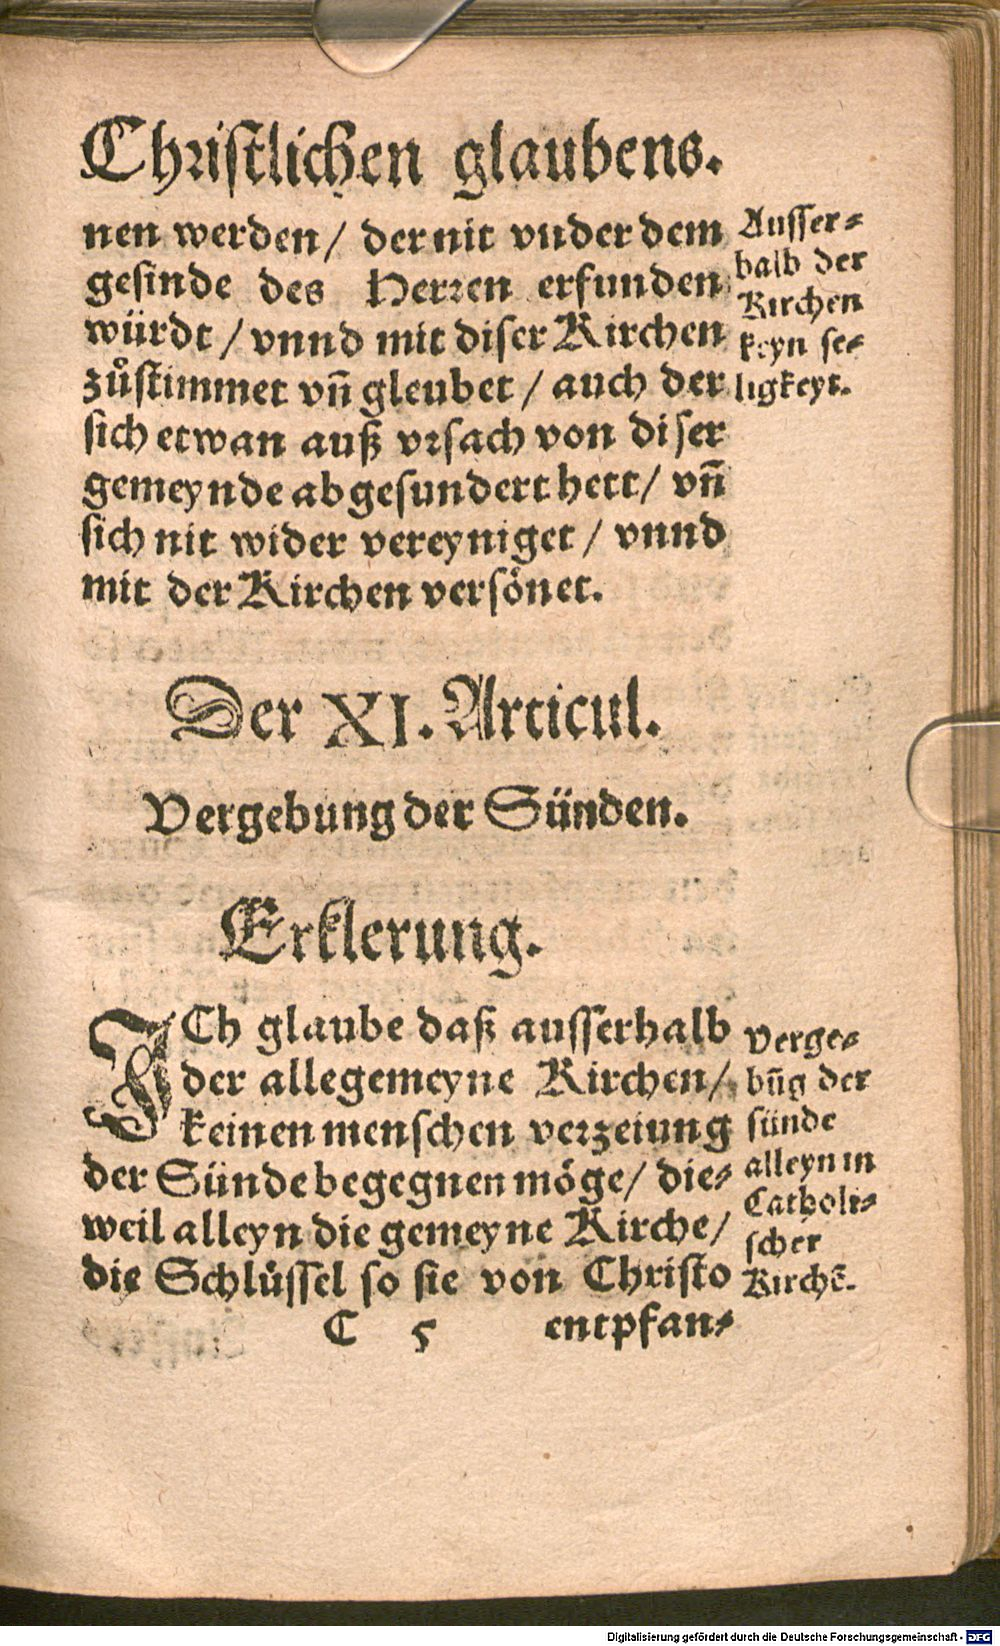 Chriſtlichen glaubens.
nen werden / der nit vnder dem
geſinde des Herren erfunden
würdt / vnnd mit diſer Kirchen
zůſtimmet vñ gleubet / auch der
ſich etwan auß vrſach von diſer
gemeynde abgeſundert hett / vñ
ſich nit wider vereyniget / vnnd
mit der Kirchen verſönet.
Auſſer⸗
halb der
Kirchen
keyn ſe⸗
ligkeyt.
Der XI. Articul.
Vergebung der Sünden.
Erklerung.
ICh glaube daß auſſerhalb
der allegemeyne Kirchen /
keinen menſchen verzeiung
der Sünde begegnen möge / die⸗
weil alleyn die gemeyne Kirche /
die Schlüſſel ſo ſie von Chriſto
Verge⸗
bũg der
ſünde
alleyn in
Catholi⸗
ſcher
Kirchẽ.
C 5 entpfan⸗
Digitalisierung gefördert durch die Deutsche Forschungsgemeinschaft - DFG